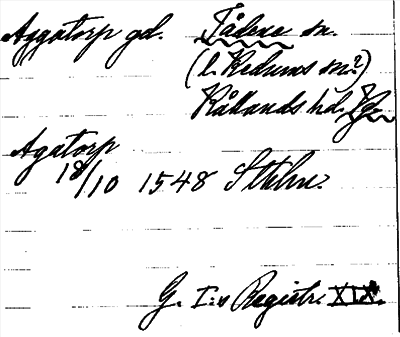 Aggatorp gd. Tådene sn.
(l. Kedums sn.?)
Kållands hd. Vg.
Agatorp
18/10 1548 Sthlm.
G. I:s Registr. XIX.